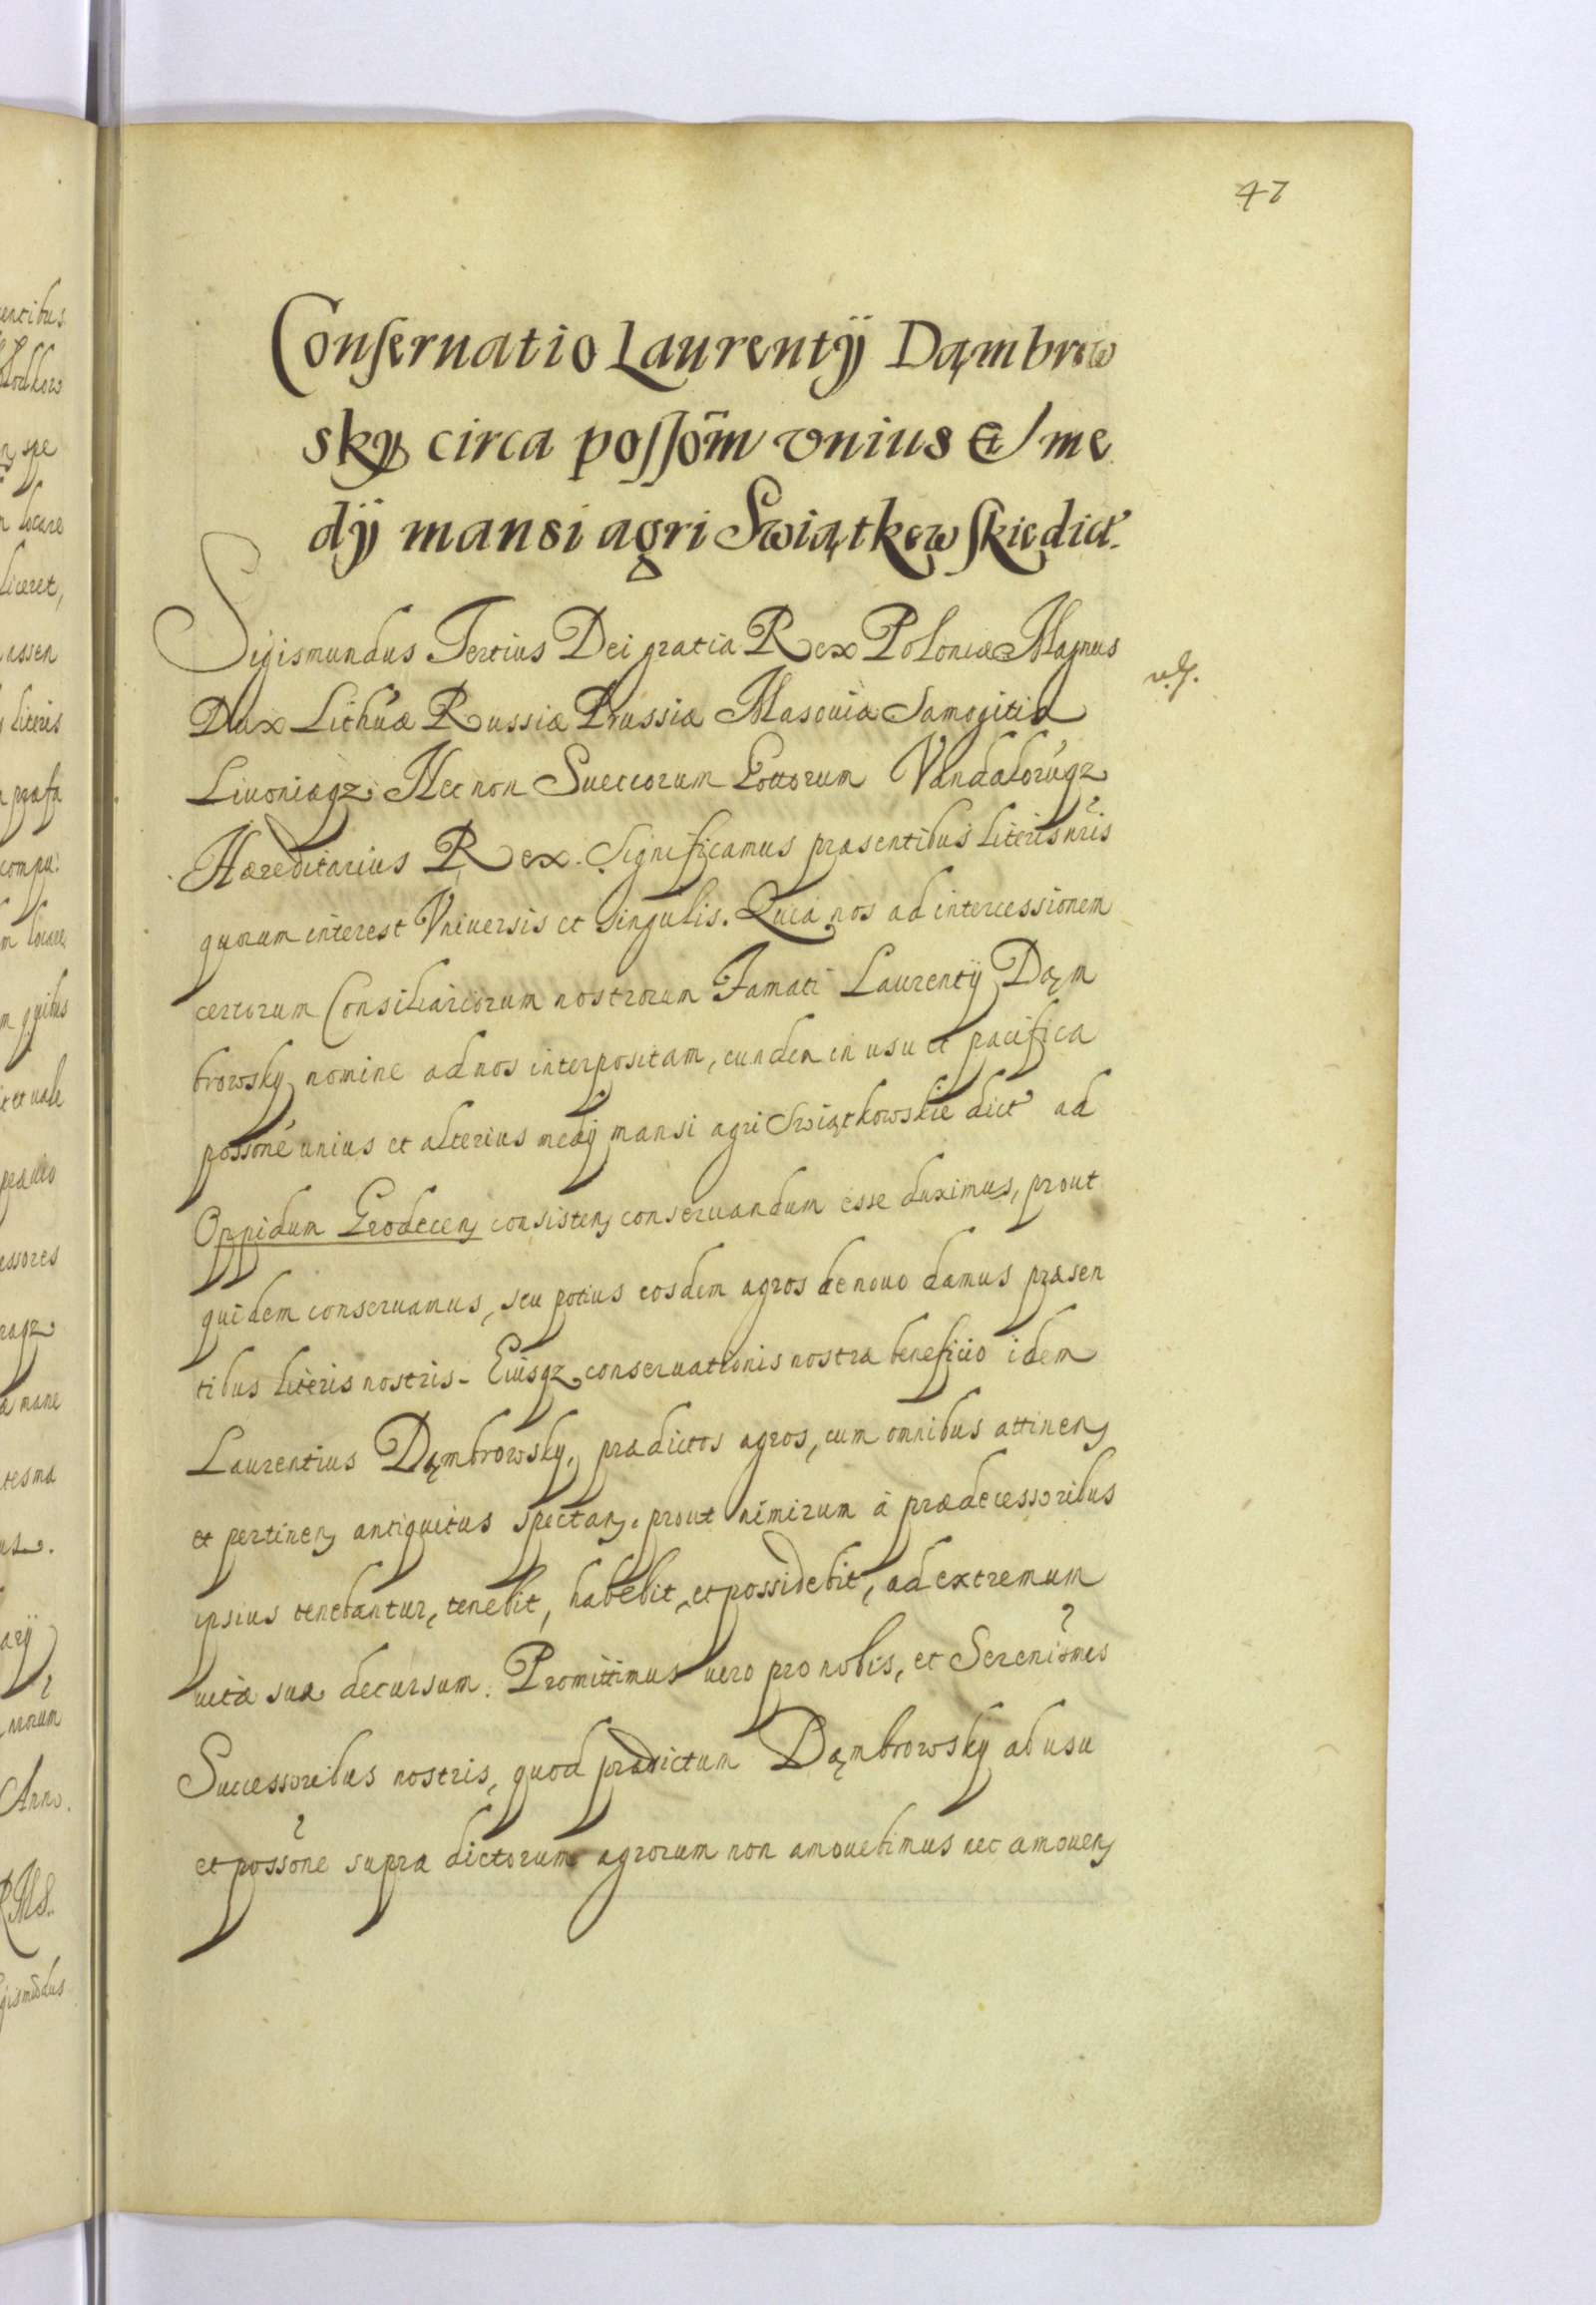 47
Conseruatio Laurentÿ Dąmbrow
sky circa possõm vnius et me
dÿ mansi agri Swiątkowskie dict.
Sigismundus Tertius Dei gratia Rex Poloniæ Magnus
Dux Lithuæ Russiæ Prussiæ Masouiæ Samogitiæ
Liuoniæqz. Nec non Sueccorum Gottorum Vandalorũqz
Hæreditarius Rex. Significamus præsentibus literis nr̃is
quorum interest Vniuersis et singulis. Quia nos ad intercessionem
certorum Consiliariorum nostrorum Famati Laurentÿ Dąm
browsky nomine ad nos interpositam, eundem in usu et pacifica
possone unius et alterius medÿ mansi agri Swiątkowskie dict ad
Oppidum Grodecen consisten conseruandum esse duximus, prout
quidem conseruamus, seu potius eosdem agros de nouo damus præsen
tibus literis nostris. Eiusqz conseruationis nostræ beneficio idem
Laurentius Dąmbrowsky, prædictos agros, cum omnibus attinen
et pertinen antiquitus spectan. prout nimirum à prædecessoribus
ipsius tenebantur, tenebit, habebit, et possidebit, ad extremum
uitæ suæ decursum. Promittimus uero pro nobis, et Serenismis
Successoribus nostris, quod prædictum Dąmbrowsky ab usu
et possone supra dictorum agrorum non amouebimus nec amouen